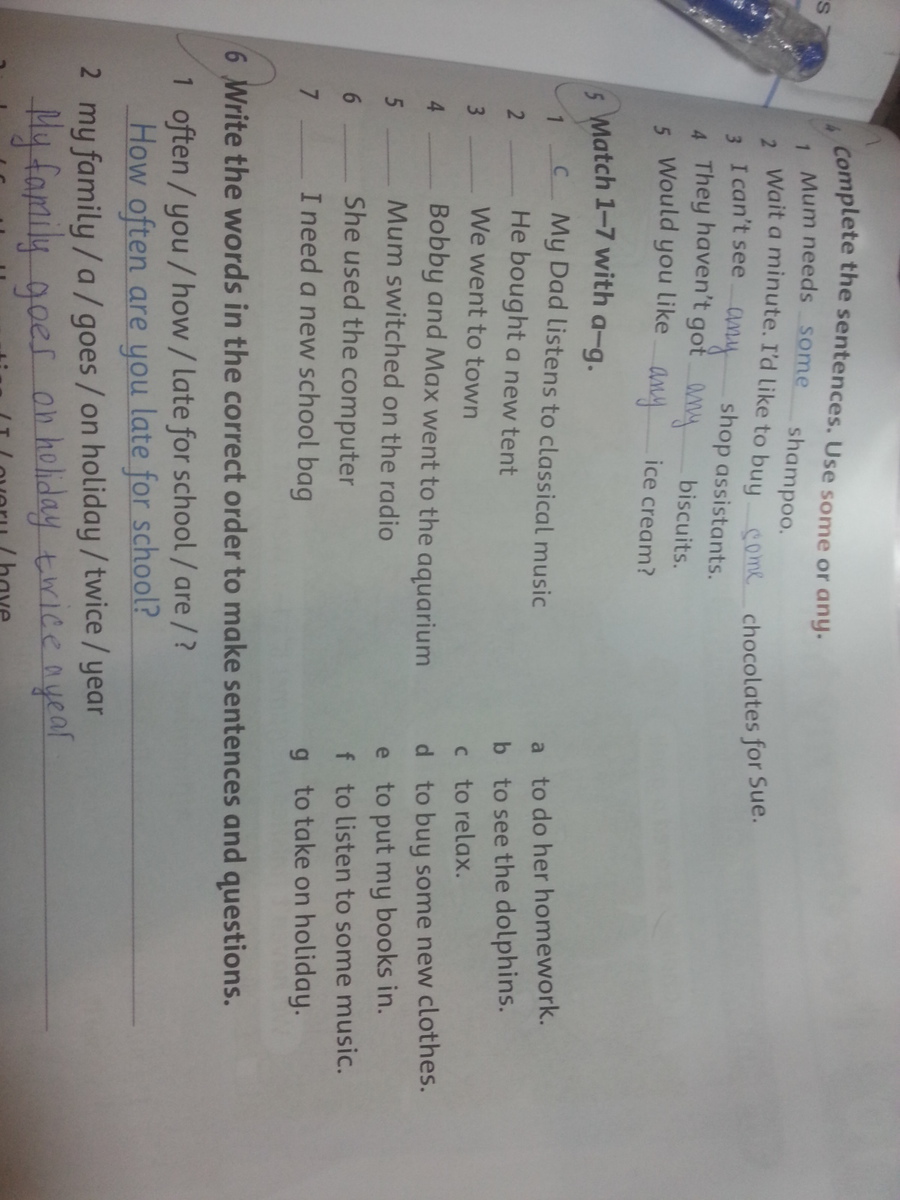 4 Complete the sentences. Use some or any.
1 Mum needs some shampoo.
2 Wait a minute. I'd like to buy come chocolates for Sue.
3 I can't see any shop assistants.
4 They haven't got any biscuits.
5 Would you like any ice cream?
5 Match 1–7 with a–g.
1 c My Dad listens to classical music
2 He bought a new tent
3 We went to town
4 Bobby and Max went to the aquarium
5 Mum switched on the radio
6 She used the computer
7 I need a new school bag
a to do her homework.
b to see the dolphins.
c to relax.
d to buy some new clothes.
e to put my books in.
f to listen to some music.
g to take on holiday.
6 Write the words in the correct order to make sentences and questions.
1 often / you / how / late for school / are / ?
How often are you late for school?
2 my family / a / goes / on holiday / twice / year
My family goes on holiday twice a year